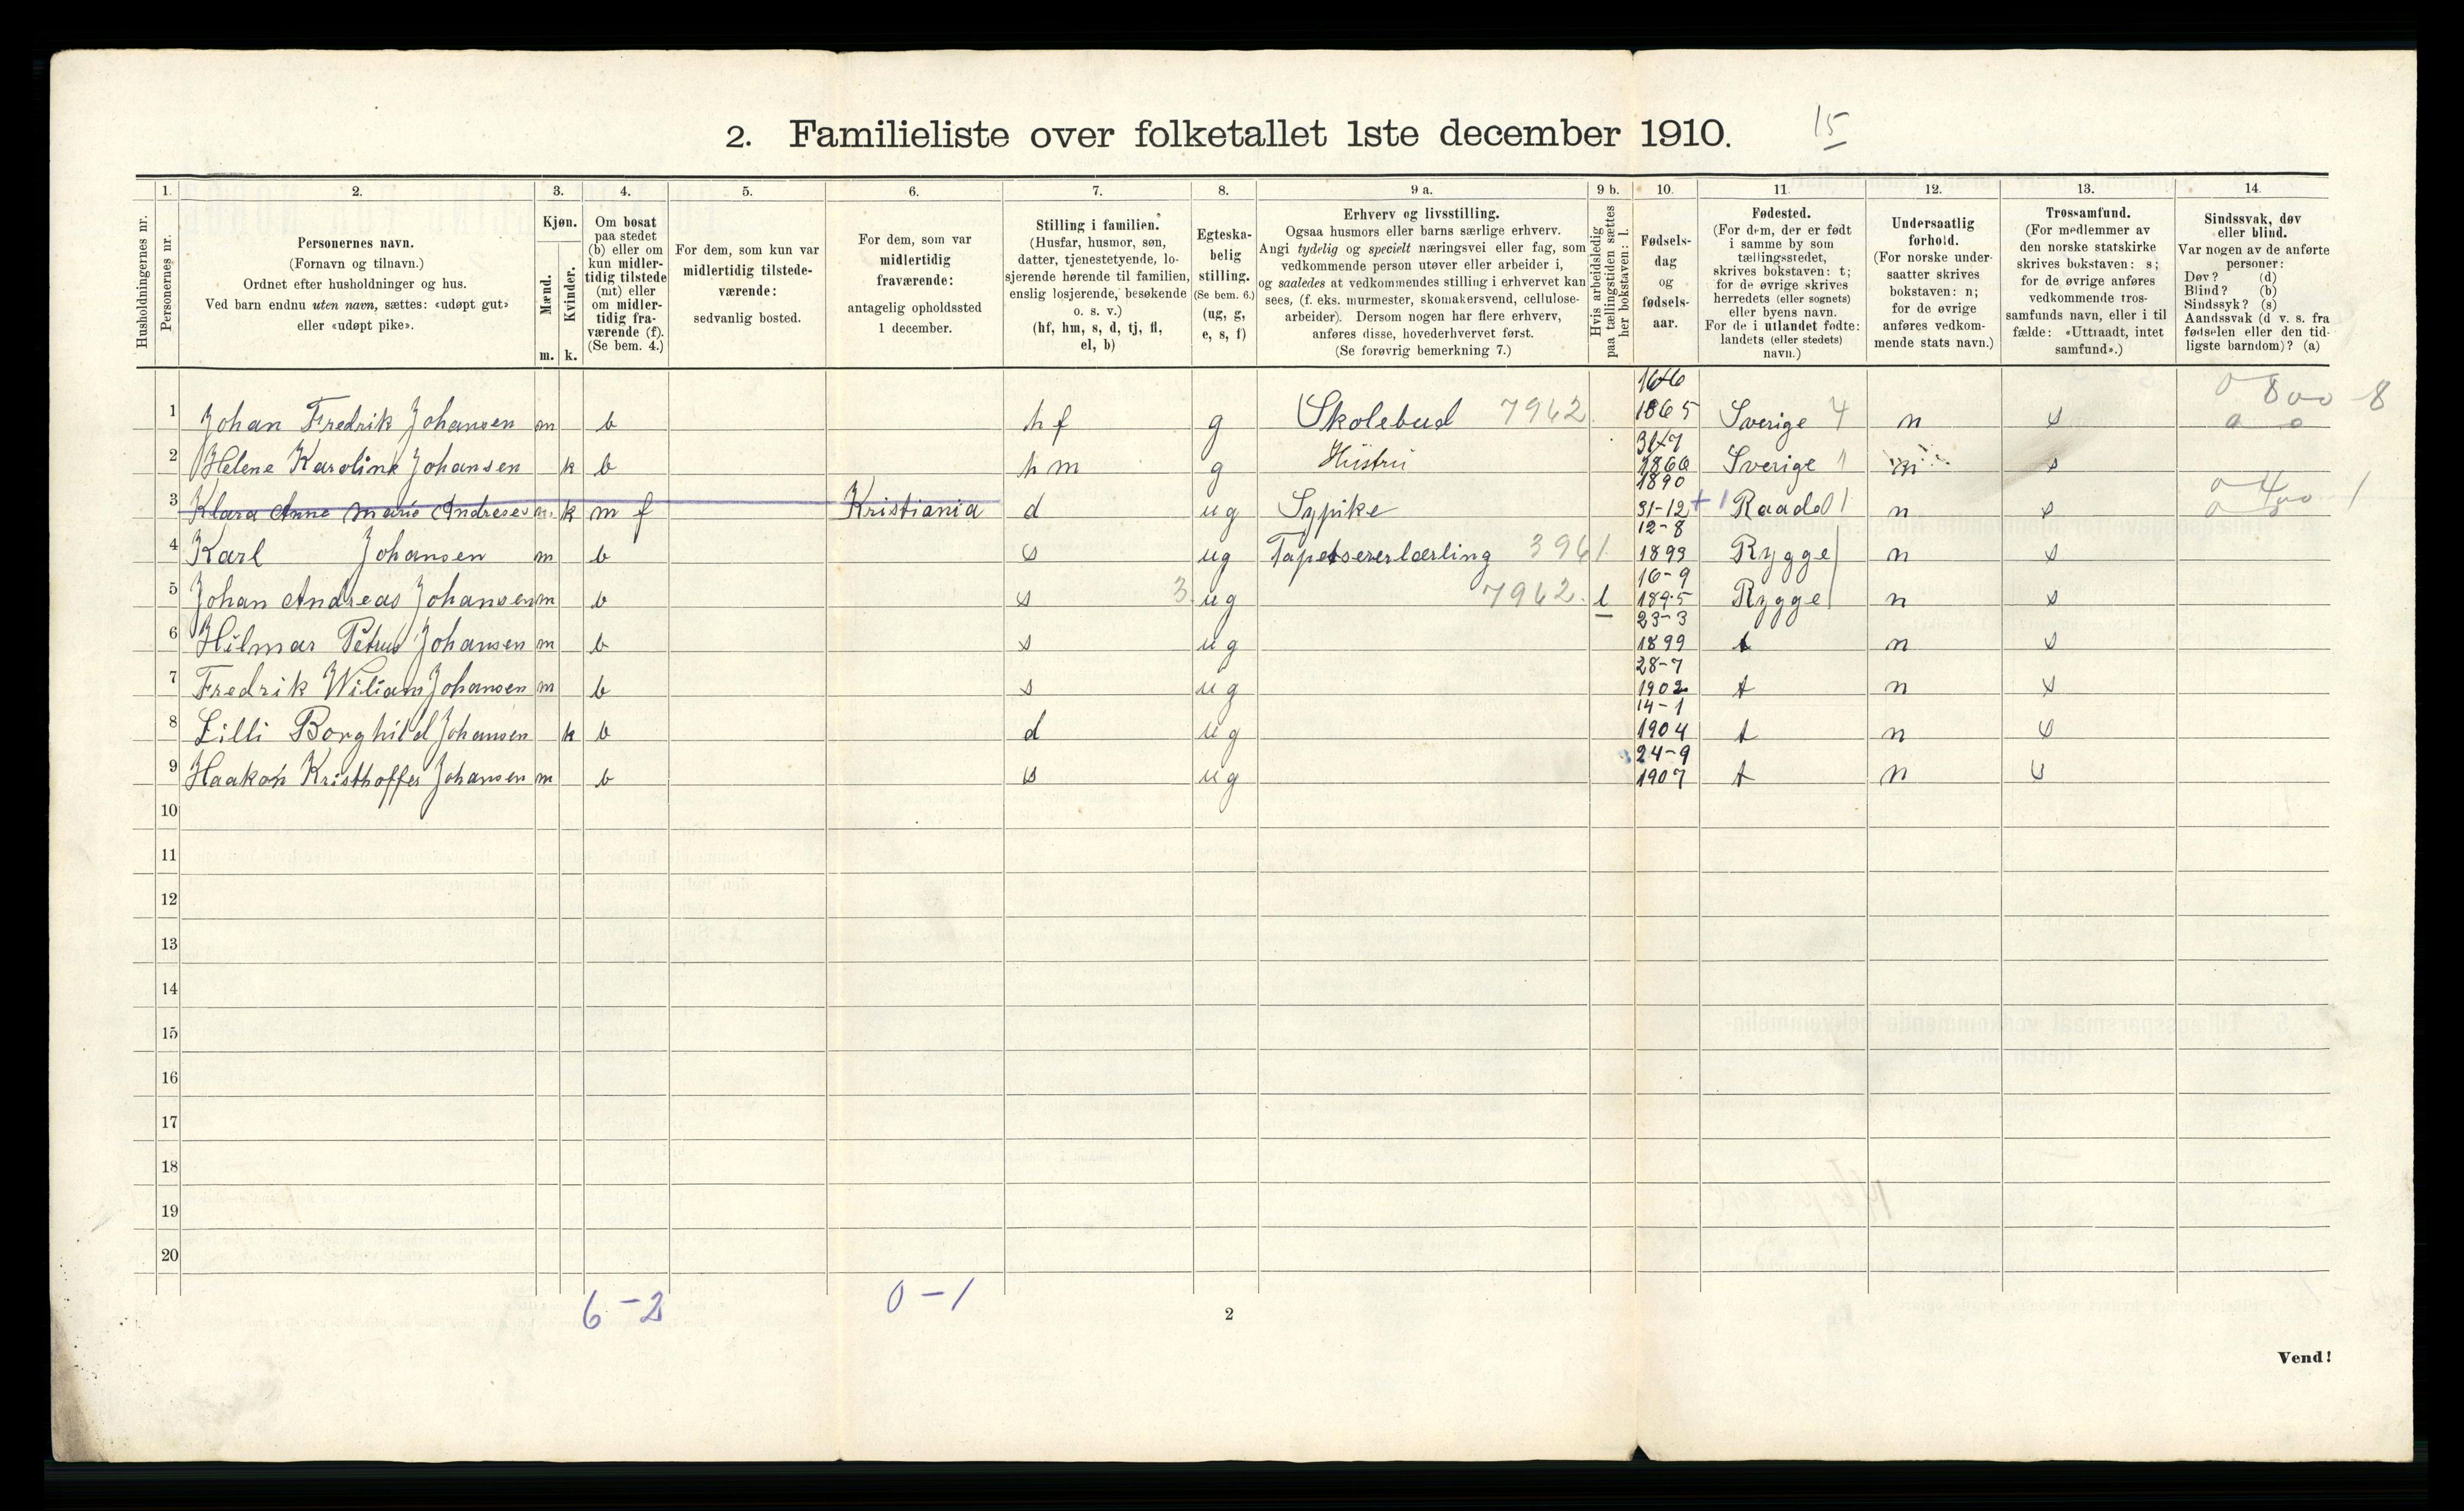 2. Familieliste over folketallet 1ste december 1910. 15
1. 2. 3. 4. 5. 6. 7. 8. 9 a. 9 b. 10. 11. 12. 13. 14.
Husholdningernes nr.
Personernes nr.
Personernes navn.
(Fornavn og tilnavn.)
Ordnet efter husholdninger og hus.
Ved barn endnu uten navn, sættes: «udøpt gut»
eller «udøpt pike».
Kjøn.
Mænd.
Kvinder.
m. k.
Om bosat
paa stedet
(b) eller om
kun midler-
tidig tilstede
(mt) eller
om midler-
tidig fra-
værende (f).
(Se bem. 4.)
For dem, som kun var
midlertidig tilstede-
værende:
sedvanlig bosted.
For dem, som var
midlertidig
fraværende:
antagelig opholdssted
1 december.
Stilling i familien.
(Husfar, husmor, søn,
datter, tjenestetyende, lo-
sjerende hørende til familien,
enslig losjerende, besøkende
o. s. v.)
(hf, hm, s, d, tj, fl,
el, b)
Egteska-
belig
stilling.
(Se bem. 6.)
(ug, g,
e, s, f)
Erhverv og livsstilling.
Ogsaa husmors eller barns særlige erhverv.
Angi tydelig og specielt næringsvei eller fag, som
vedkommende person utøver eller arbeider i,
og saaledes at vedkommendes stilling i erhvervet kan
sees, (f. eks. murmester, skomakersvend, cellulose-
arbeider). Dersom nogen har flere erhverv,
anføres disse, hovederhvervet først.
(Se forøvrig bemerkning 7.)
Hvis arbeidsledig
paa tællingstiden sættes
her bokstaven: l.
Fødsels-
dag
og
fødsels-
aar.
Fødested.
(For dem, der er født
i samme by som
tællingsstedet,
skrives bokstaven: t;
for de øvrige skrives
herredets (eller sognets)
eller byens navn.
For de i utlandet fødte:
landets (eller stedets)
navn.)
Undersaatlig
forhold.
(For norske under-
saatter skrives
bokstaven: n;
for de øvrige
anføres vedkom-
mende stats navn.)
Trossamfund.
(For medlemmer av
den norske statskirke
skrives bokstaven: s;
for de øvrige anføres
vedkommende tros-
samfunds navn, eller i til
fælde: «Uttraadt, intet
samfund».)
Sindssvak, døv
eller blind.
Var nogen av de anførte
personer:
Døv? (d)
Blind? (b)
Sindssyk? (s)
Aandssvak (d v. s. fra
fødselen eller den tid-
ligste barndom)? (a)
1 Johan Fredrik Johansen m b hf g Skolebud 7962 1865 Sverige 4 n s
2 Helene Karoline Johansen k b hm g Hustru 1860 Sverige s
3 Klara Anne Marie k m f Kristiania d ug Sypike 1890 31-12 Raade n s
4 Karl Johansen m b s ug Tapetsererlærling 396 12-8 1893 Rygge n s
5 Johan Andreas Johansen m b s 3 ug 7962. l 16-9 1895 Rygge n s
6 Hilmar Petrus Johansen m b s ug 23-3 1899 t n s
7 Fredrik Wiliam Johansen m b s ug 28-7 1902 t n s
8 Lilli Borghild Johansen k b d ug 14-1 1904 t n s
9 Haakon Kristhoffer Johansen m b s ug 24-9 1907 t n s
10
11
12
13
14
15
16
17
18
19
20
6-2 0-1
2
Vend!